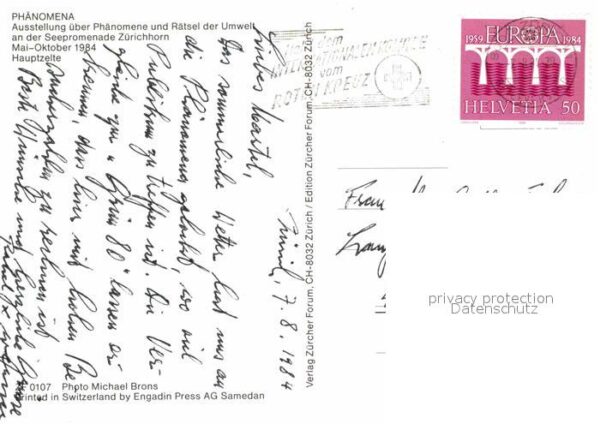 PHÄNOMENA
Ausstellung über Phänomene und Rätsel der Umwelt
an der Seepromenade Zürichhorn
Mai–Oktober 1984
Hauptzelte
Zürich, 7.8.1984
das sommerliche Wetter hat uns an
die Phänomena gelockt, wo viel
Publikum zu treffen ist. Die Ver-
gleiche zur "Grün 80" lassen er-
kennen, dass hier mit hohen Be-
sucherzahlen zu rechnen ist.
Beste Wünsche und herzliche Grüsse
0107 Photo Michael Brons
Printed in Switzerland by Engadin Press AG Samedan
Verlag Zürcher Forum, CH-8032 Zürich / Edition Zürcher Forum, CH-8032 Zürich
INTERNATIONALEN
vom
ROTEN KREUZ
1959 EUROPA 1984
HELVETIA 50
Frau
privacy protection
Datenschutz